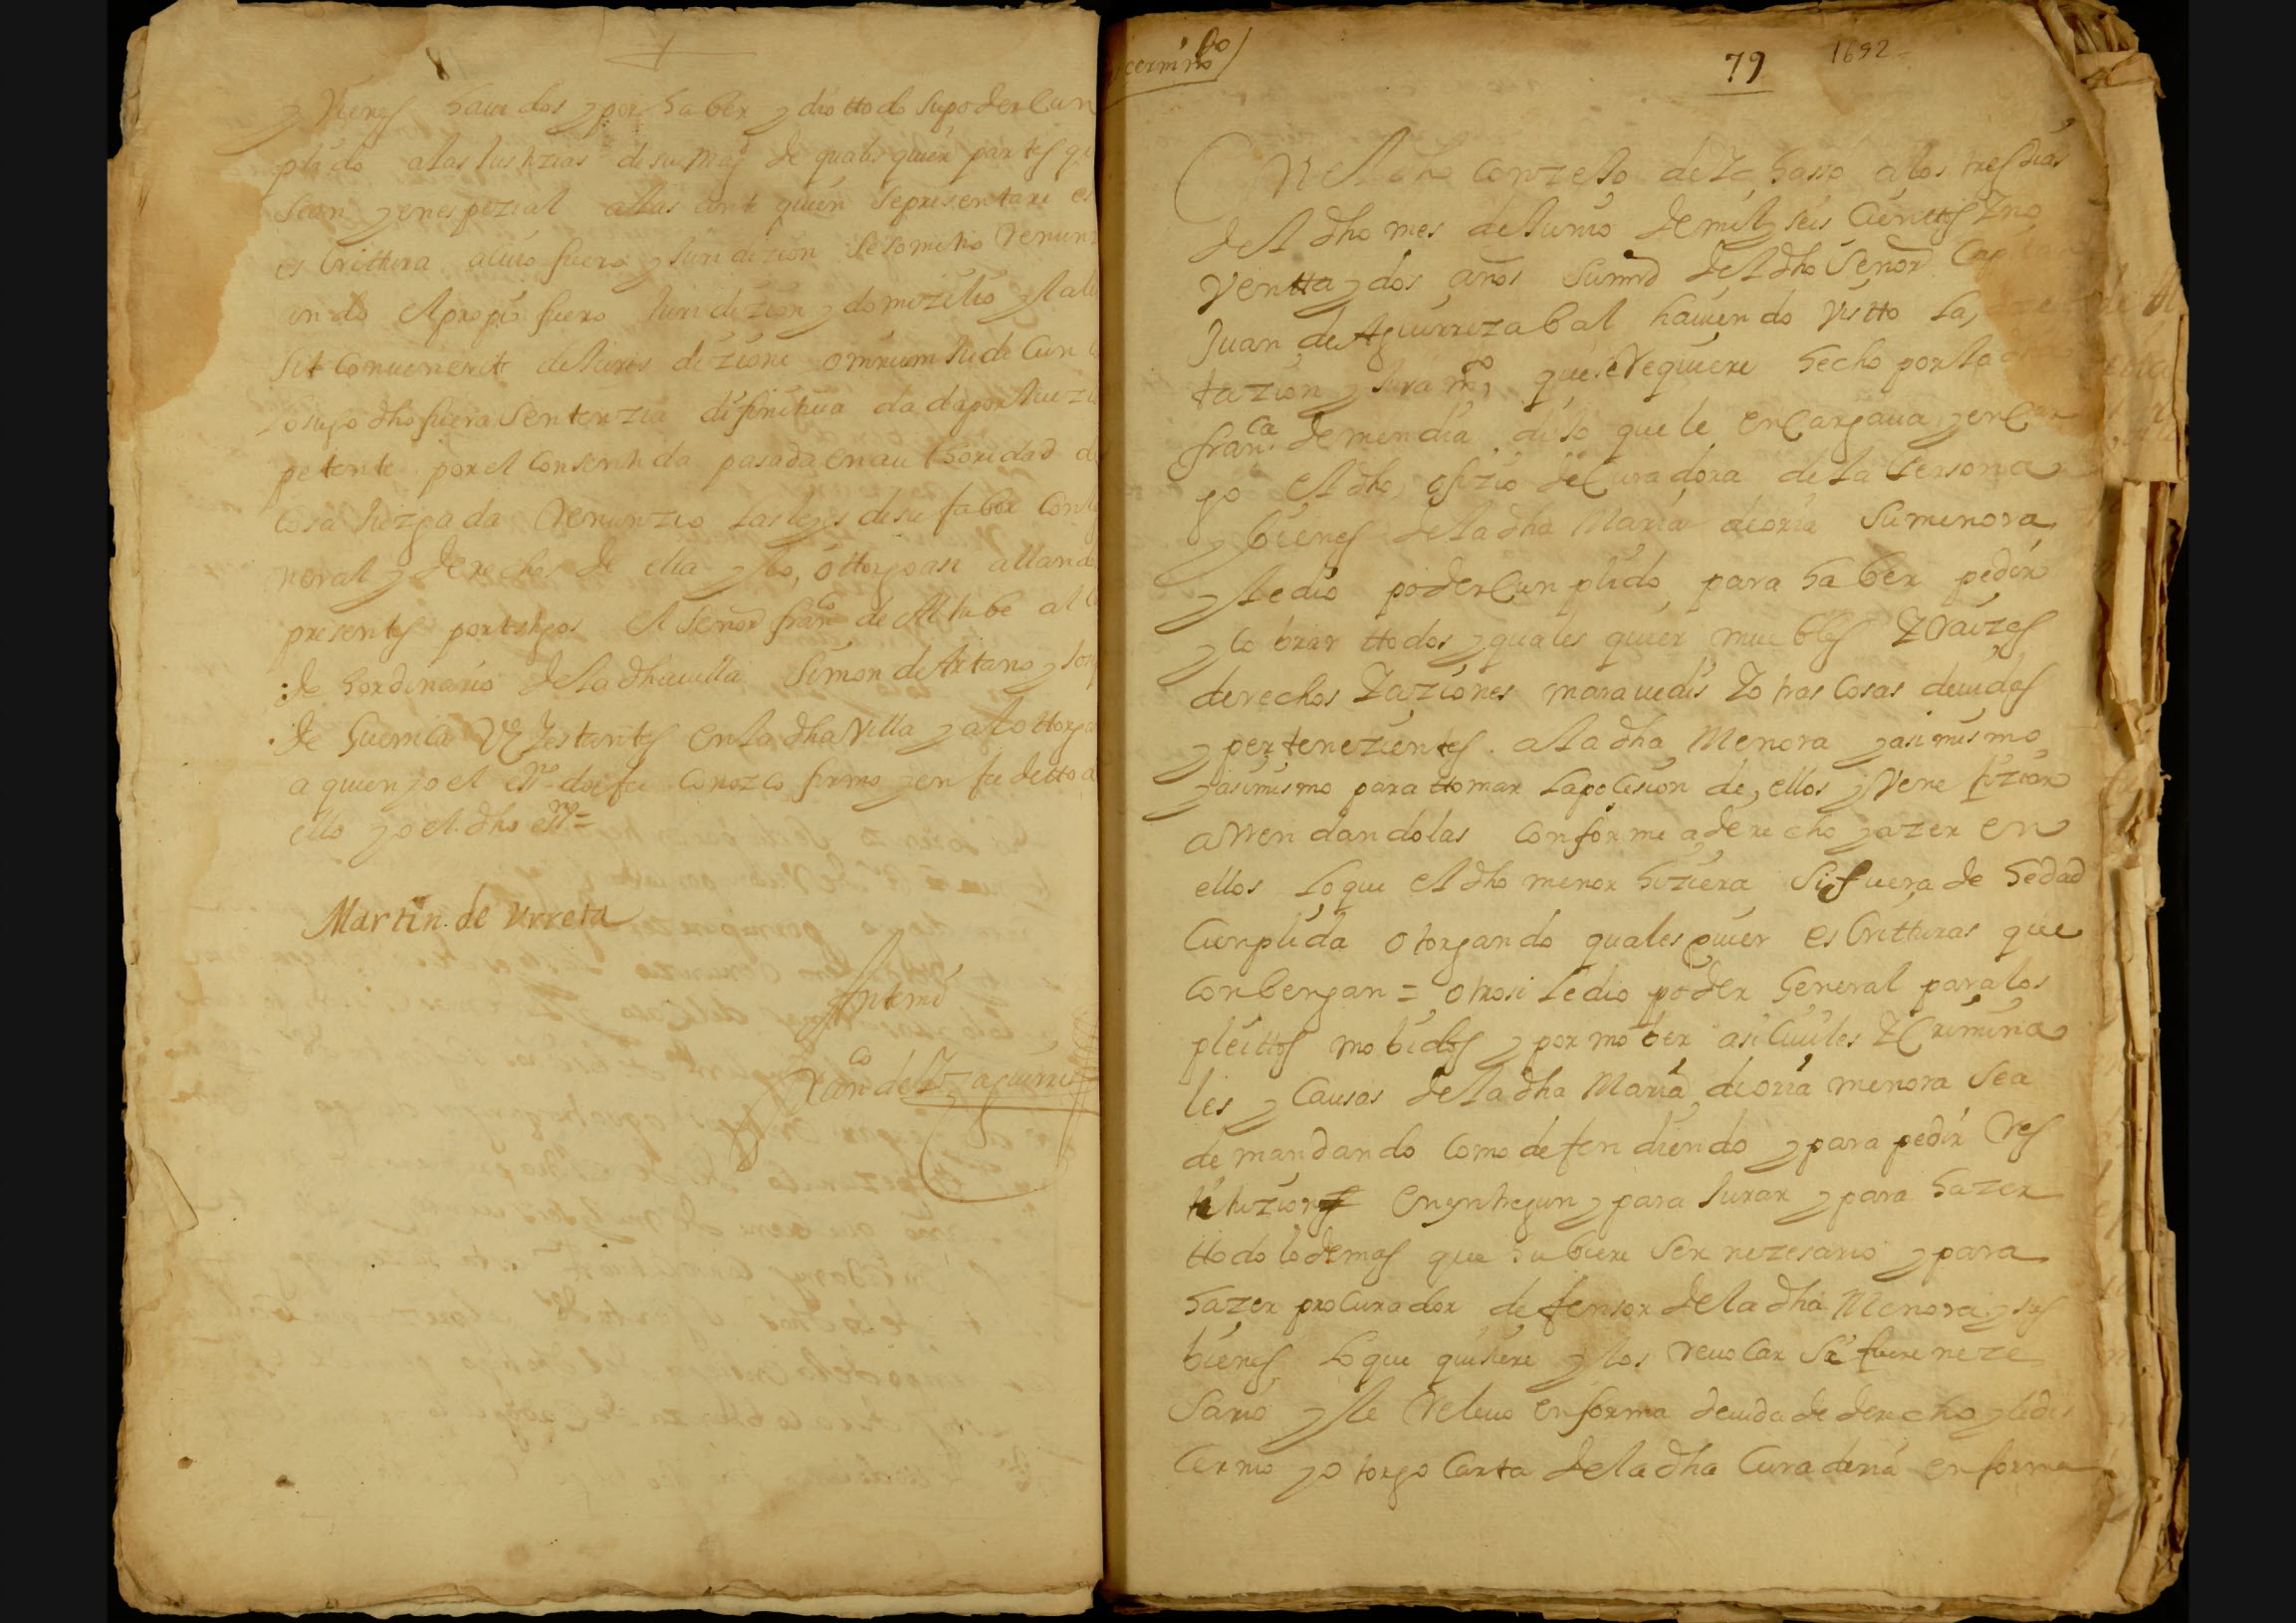 y Vienes hauidos y por haber y dio ttodo su poder Cun
plido a las Justizias de su Magd de quales quier partes q
sean y en espezial a llas ante quien se presentare es
es Crittura a cuio fuero y Juridizion se sometio Renun
ando el propio fuero Juridizion y domizilio y la le
Sit Conuenerit de Juris dizione omnium Judi Cun
lo suso dho fuera Sentenzia difinitiua dada por Juez
petente por el Consentida pasada en authoridad d
Cosa Juzgada Renunzio las leys de su fabor Con
neral y derechos de ella y lo ottorgo asi allando
presentes por testigos el Señor franco de Altube al
de hordinario de la dha uilla Simon de Artano y
de Guernica Vs Jestantes en la dha Villa y al ottorga
a quien yo el essno doi fee Conozco firmo y en fee de tto
ello yo el dho essno =
Martin de Vrreta
Ante mi
franco de
79
1692
En el dho Conzejo de a los tres dias
del dho mes de Junio de mil y seis Cienttos y no
Ventta y dos años Su md del dho Señor Capitan
Juan de Aguirrezabal hauiendo Vistto la
tazion y Juramto que se Requiere hecho por la
franca de mendia dijo que le encargaua y encar
go el dho ofizio de Curadora de la Persona
y bienes de la dha Maria de oria Su menora
y le dio poder Cunplido para haber pedir
y cobrar ttodos y quales quier muebles y Raizes
derechos y aziones marauedis y otras Cosas deuidas
y pertenezientes a la dha Menora y asimismo
y asimismo para ttomar la posesion de ellos y Vene fizion
arrendandolas conforme a derecho y azer en
ellos lo que el dho menor hiziera Si fuera de hedad
Cunplida otorgando quales quier es Critturas que
conbengan = otrosi le dio poder General para los
pleittos mobidos y por mober asi Ciuiles y Crimina
les y Causas de la dha Maria de oria menora sea
demandando como defendiendo y para pedir Res
tituzion en yntregun y para Jurar y para hazer
ttodo lo demas que ubiere Ser nezesario y para
hazer procurador defensor de la dha Menora y sus
bienes lo que quisiere y los reuocar Si fuere neze
sario y le Releuo en forma deuida de derecho y le dis
cernio y otorgo Carta de la dha Curaderia en forma